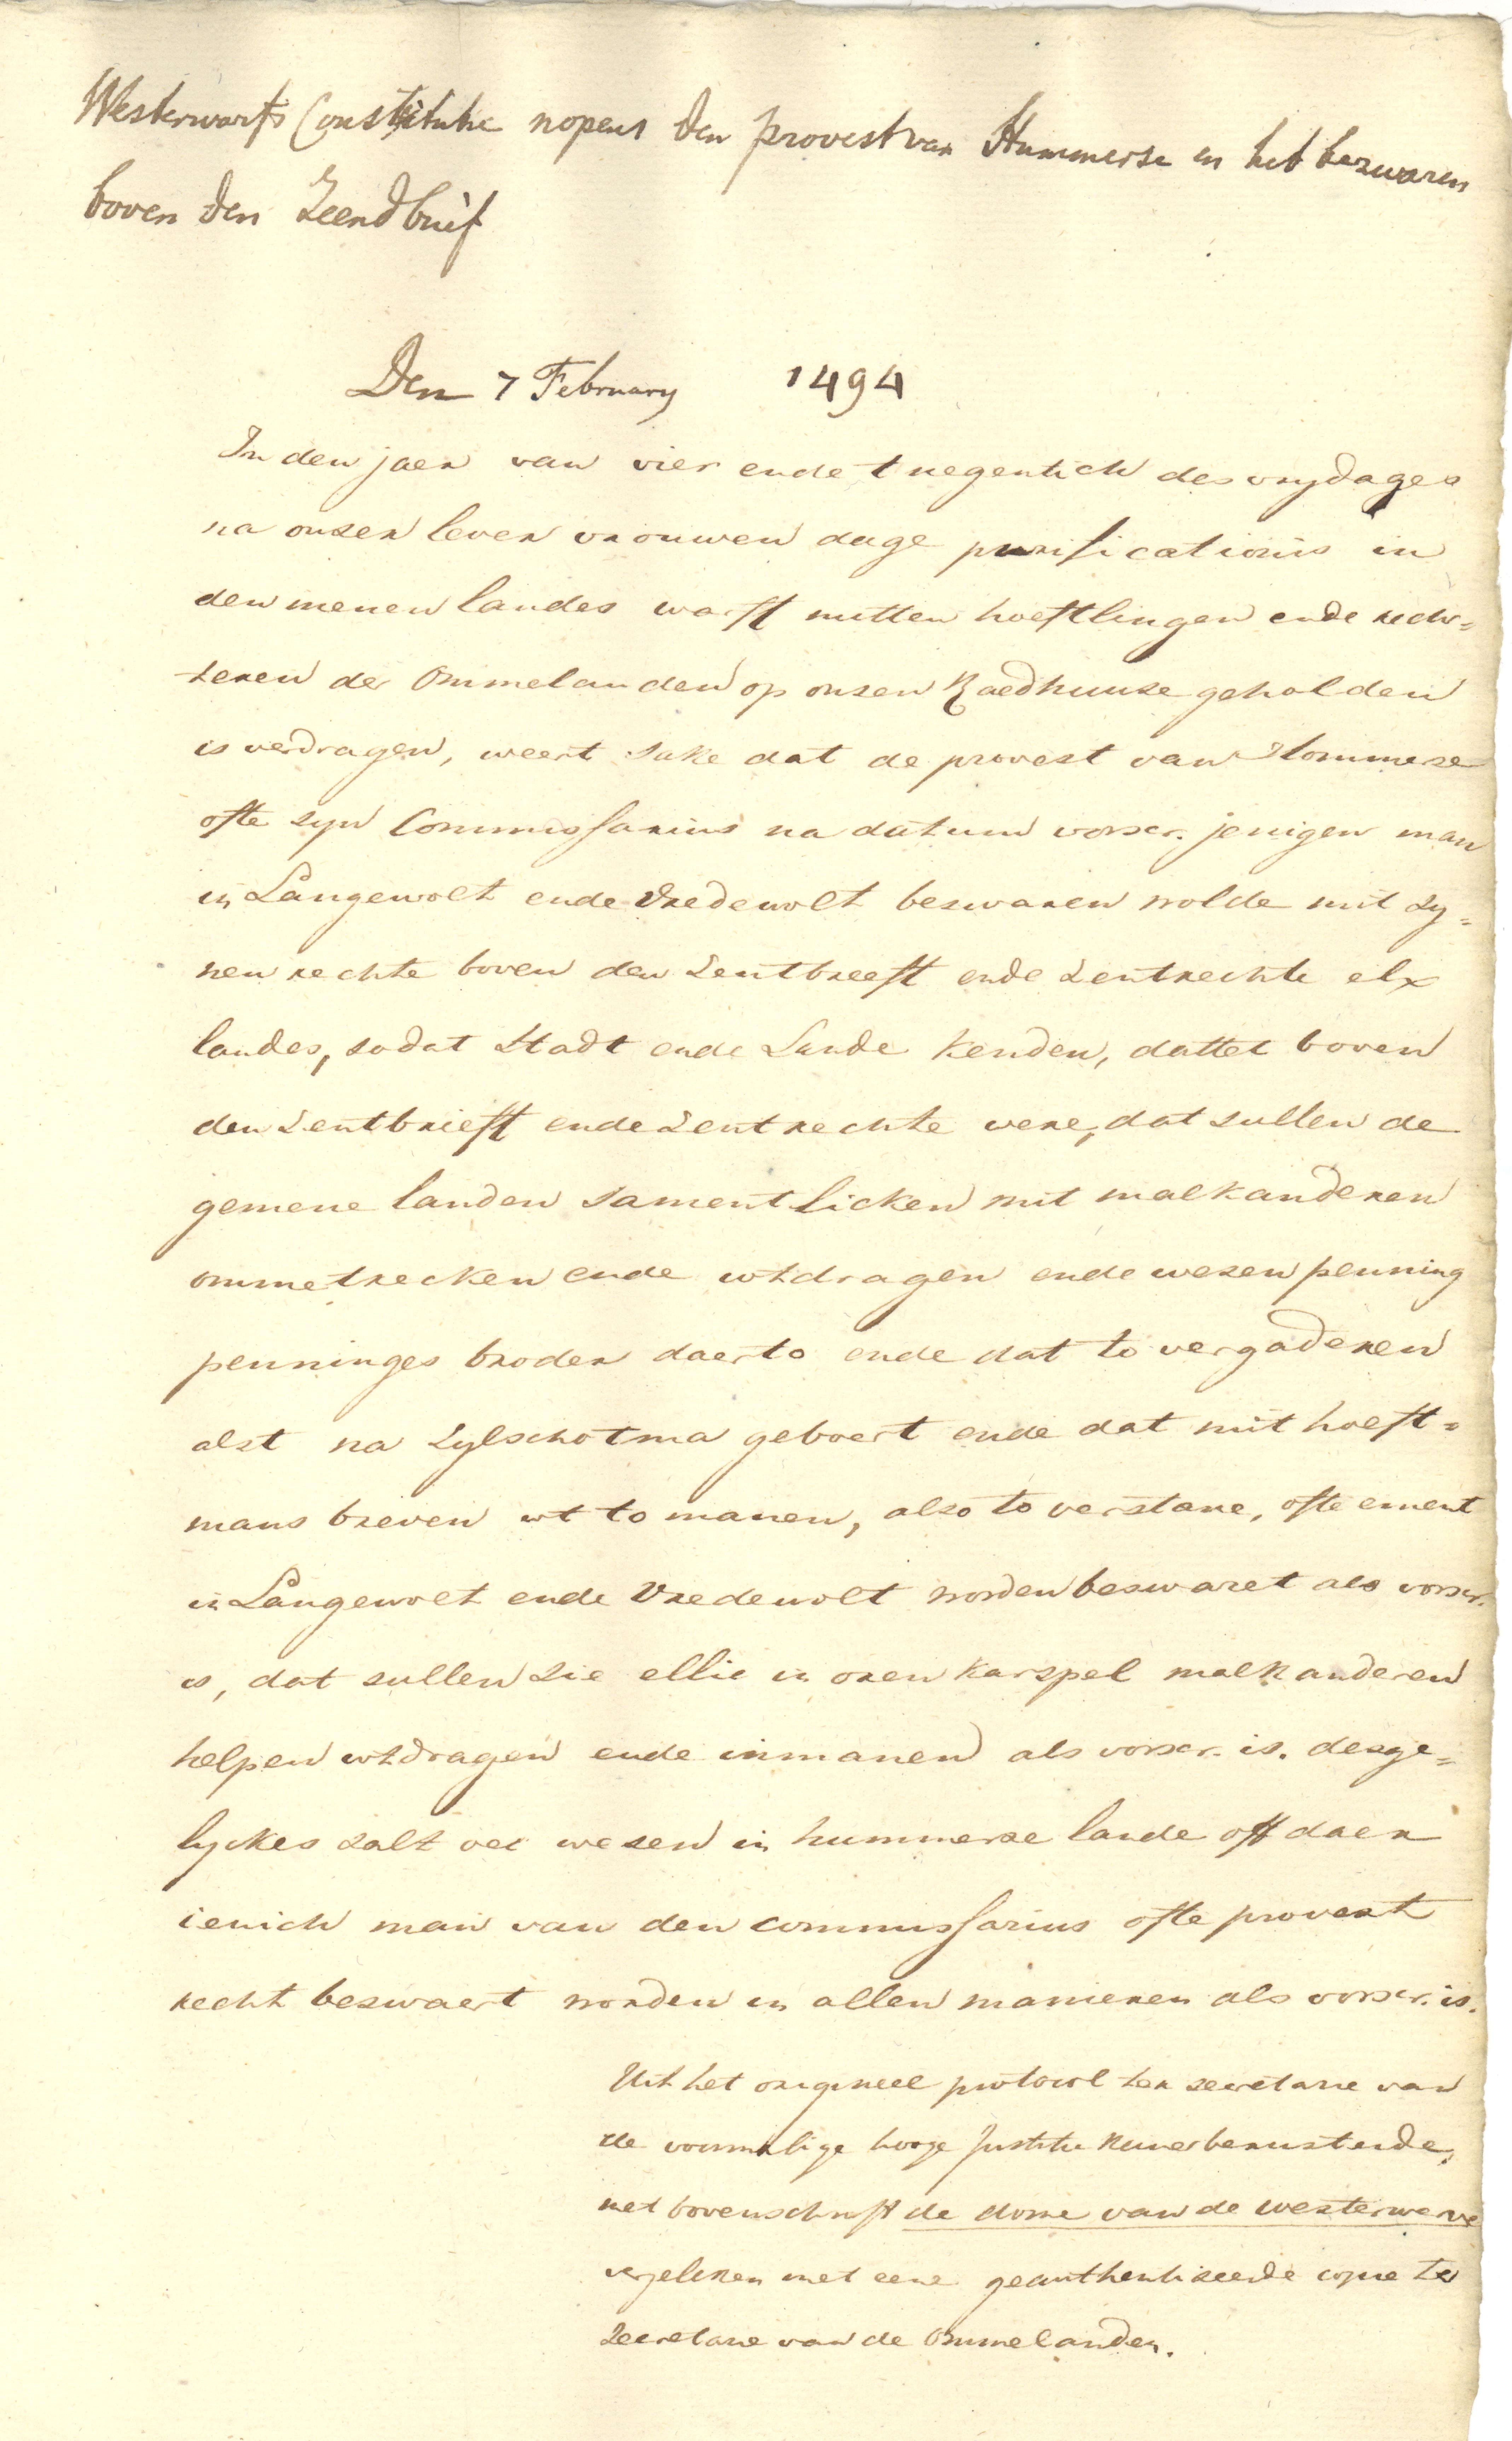 Westerwarfs Constitutie nopens den provest van Hummerse in het bezwaren
boven den Zeendbrief
Den 7 February 1494
In den jaer van vier ende t negentich des vrydages
na onser lever vrouwen dage purificationis in
den menen landes warft mitten hoeftlingen ende rech=
teren der Ommelanden op onsen Raedhuuse geholden
is verdragen, weert sake dat de provest van Hommerse
ofte syn Commissarius na datum vorscr. jenigen man
in Langewolt ende Vredewolt beswaren wolde mit sy=
nen rechte boven den Sentbreeft ende Sentrechte elx
landes, sodat Stadt ende Lande kenden, dattet boven
den Sentbrieft ende Sentrechte were, dat sullen de
gemene landen samentlicken mit malkanderen
ommetrecken ende wtdragen ende wesen penning
penninges broder daerto ende dat to vergaderen
alst na Sylschotma geboert ende dat mit hoeft=
mans breven wt to manen, also to verstane, ofte ement
in Langewolt ende Vredewolt worden beswaret als vorscr.
is, dat sullen sie ellic in oren karspel malkanderen
helpen wtdragen ende inmanen als vorscr. is. desge=
lyckes salt oec wesen in hummerse lande off daer
ienich man van den commissarius ofte provest
recht beswaert worden in allen manieren als vorscr. is.
Uit het origineel protocol ter secretarie van
de voormalige hooge Justitie Kamer berustende,
met bovenschrift de dome van de westerwerve
vergeleken met eene geauthentiseerde copie ter
Secretarie van de Ommelanden.